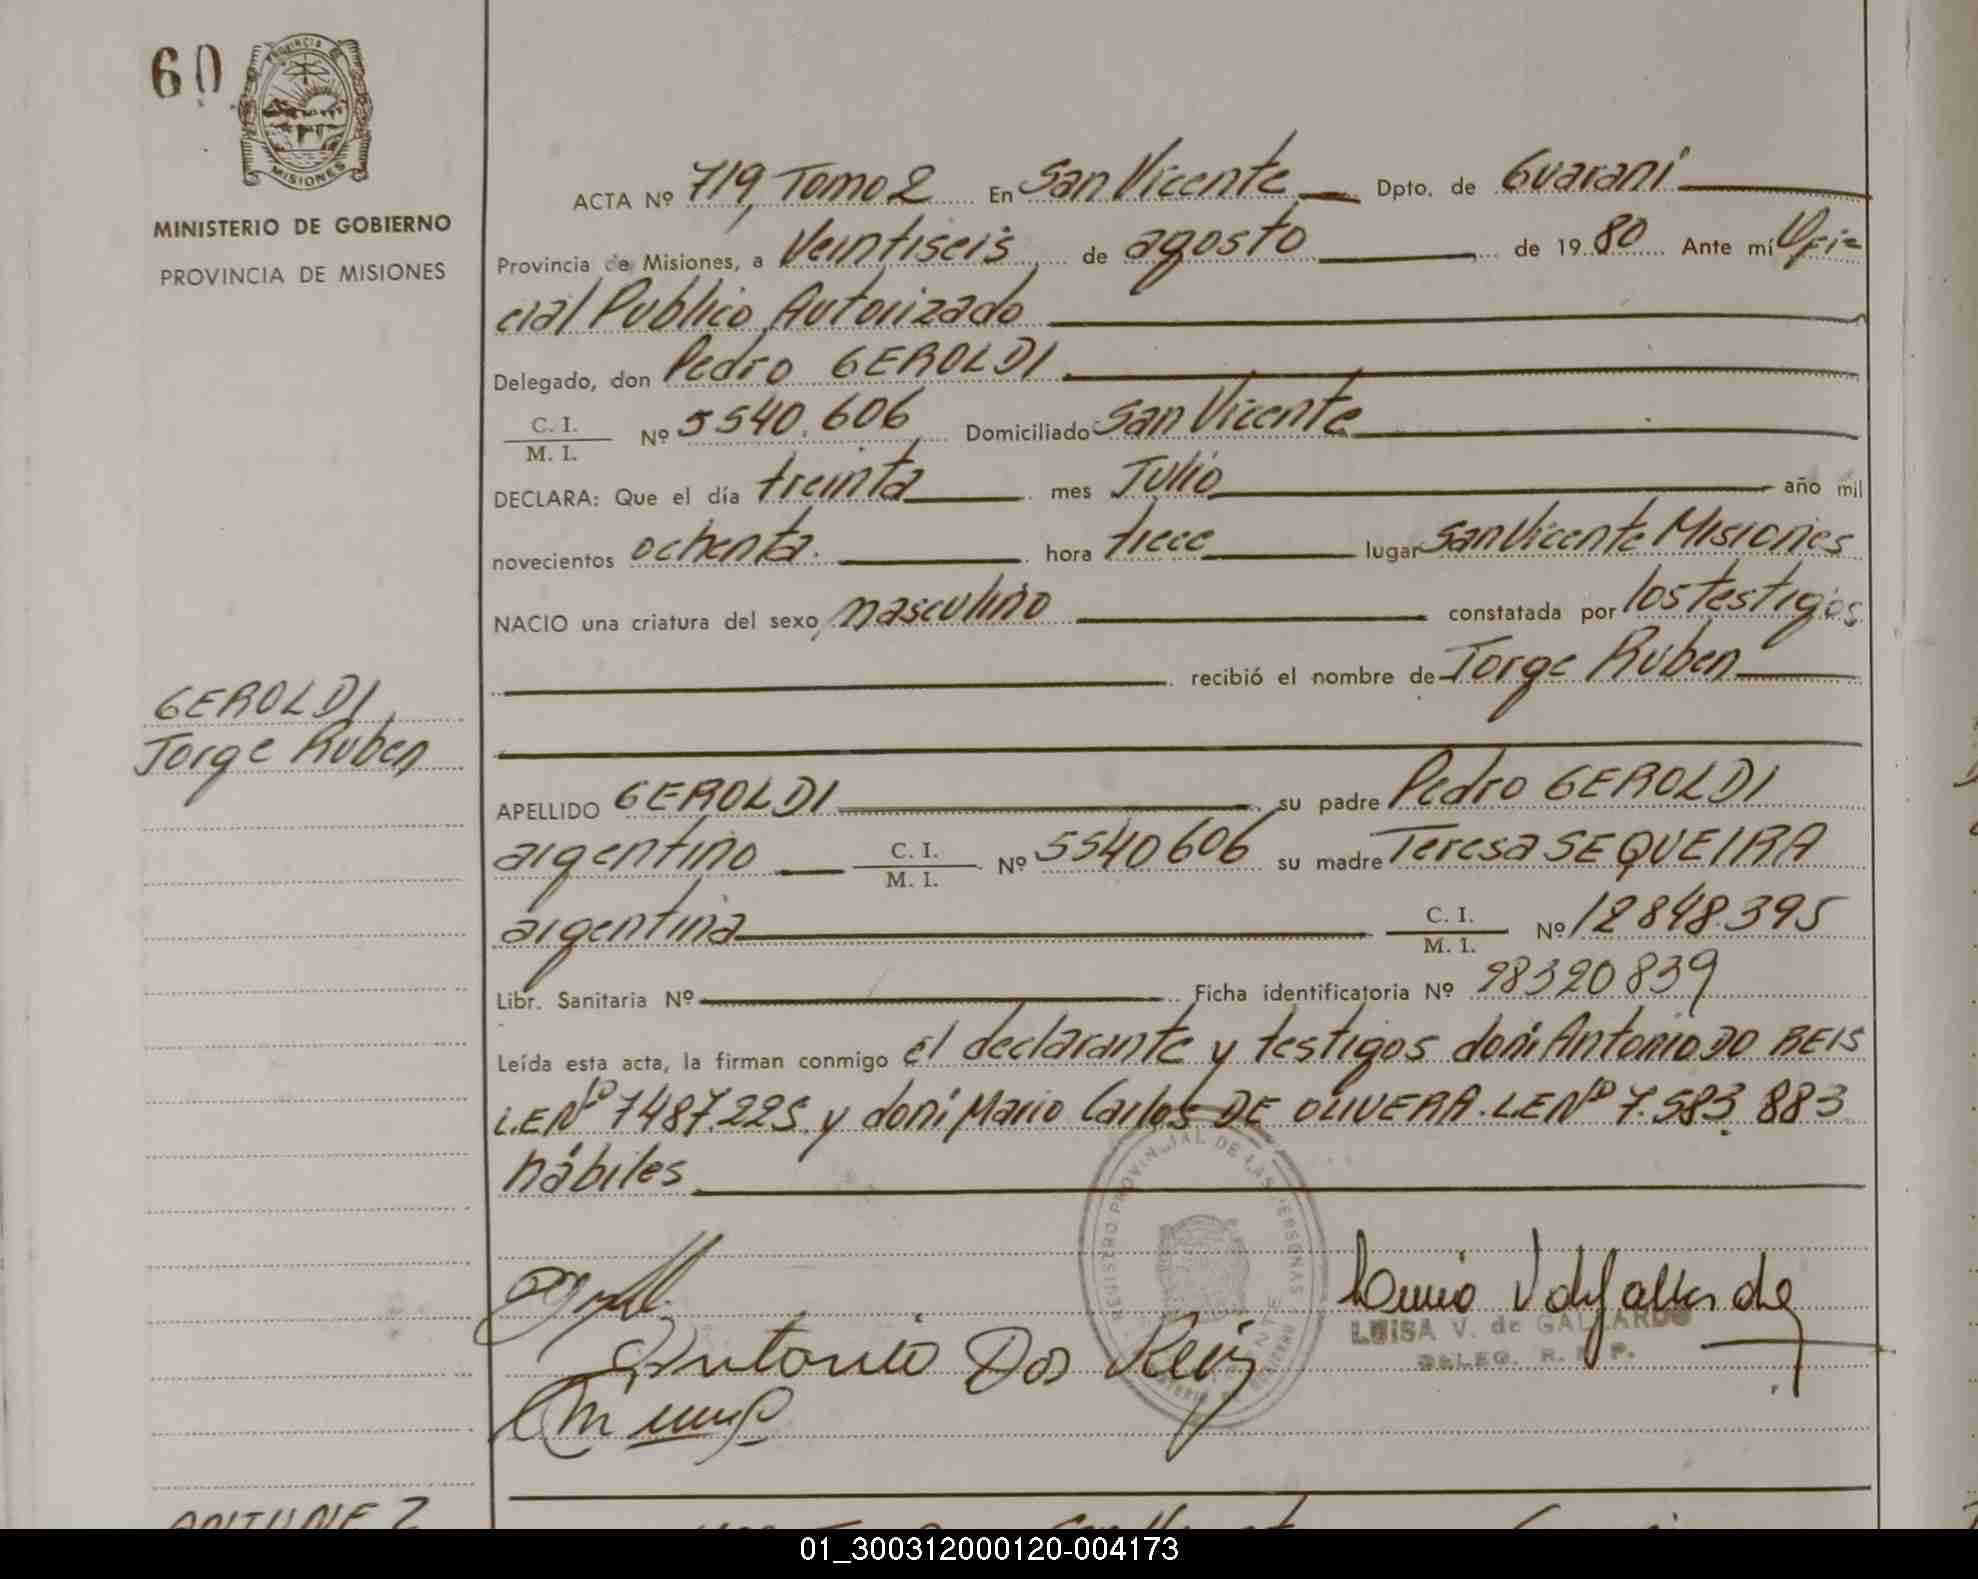 60
PROVINCIA DE
MISIONES
MINISTERIO DE GOBIERNO
PROVINCIA DE MISIONES
ACTA Nº 719, Tomo 2 En San Vicente Dpto. de Guarani
Provincia de Misiones, a Veintiseis de agosto de 1980 Ante mí Ofi=
cial Publico Autorizado
Delegado, don Pedro GEROLDI
C. I.
M. I. Nº 5540.606 Domiciliado San Vicente
DECLARA: Que el día treinta mes Julio año mil
novecientos ochenta. hora trece lugar San Vicente Misiones
NACIO una criatura del sexo masculino constatada por los testigos
recibió el nombre de Jorge Ruben
GEROLDI
Jorge Ruben
APELLIDO GEROLDI su padre Pedro GEROLDI
argentino C. I.
M. I. Nº 5540606 su madre Teresa SEQUEIRA
argentina C. I.
M. I. Nº 12848.395
Libr. Sanitaria Nº Ficha identificatoria Nº 98320839
Leída esta acta, la firman conmigo el declarante y testigos don: Antonio DO REIS
L.E Nº 7487.225. y don: Mario Carlos DE OLIVERA. L.E Nº 7.583.883
hábiles
REGISTRO PROVINCIAL DE LAS PERSONAS
Antonio Dos Reis
LUISA V. de GALLARDO
DELEG. R. P. P.
ANTUNEZ
01_300312000120-004173